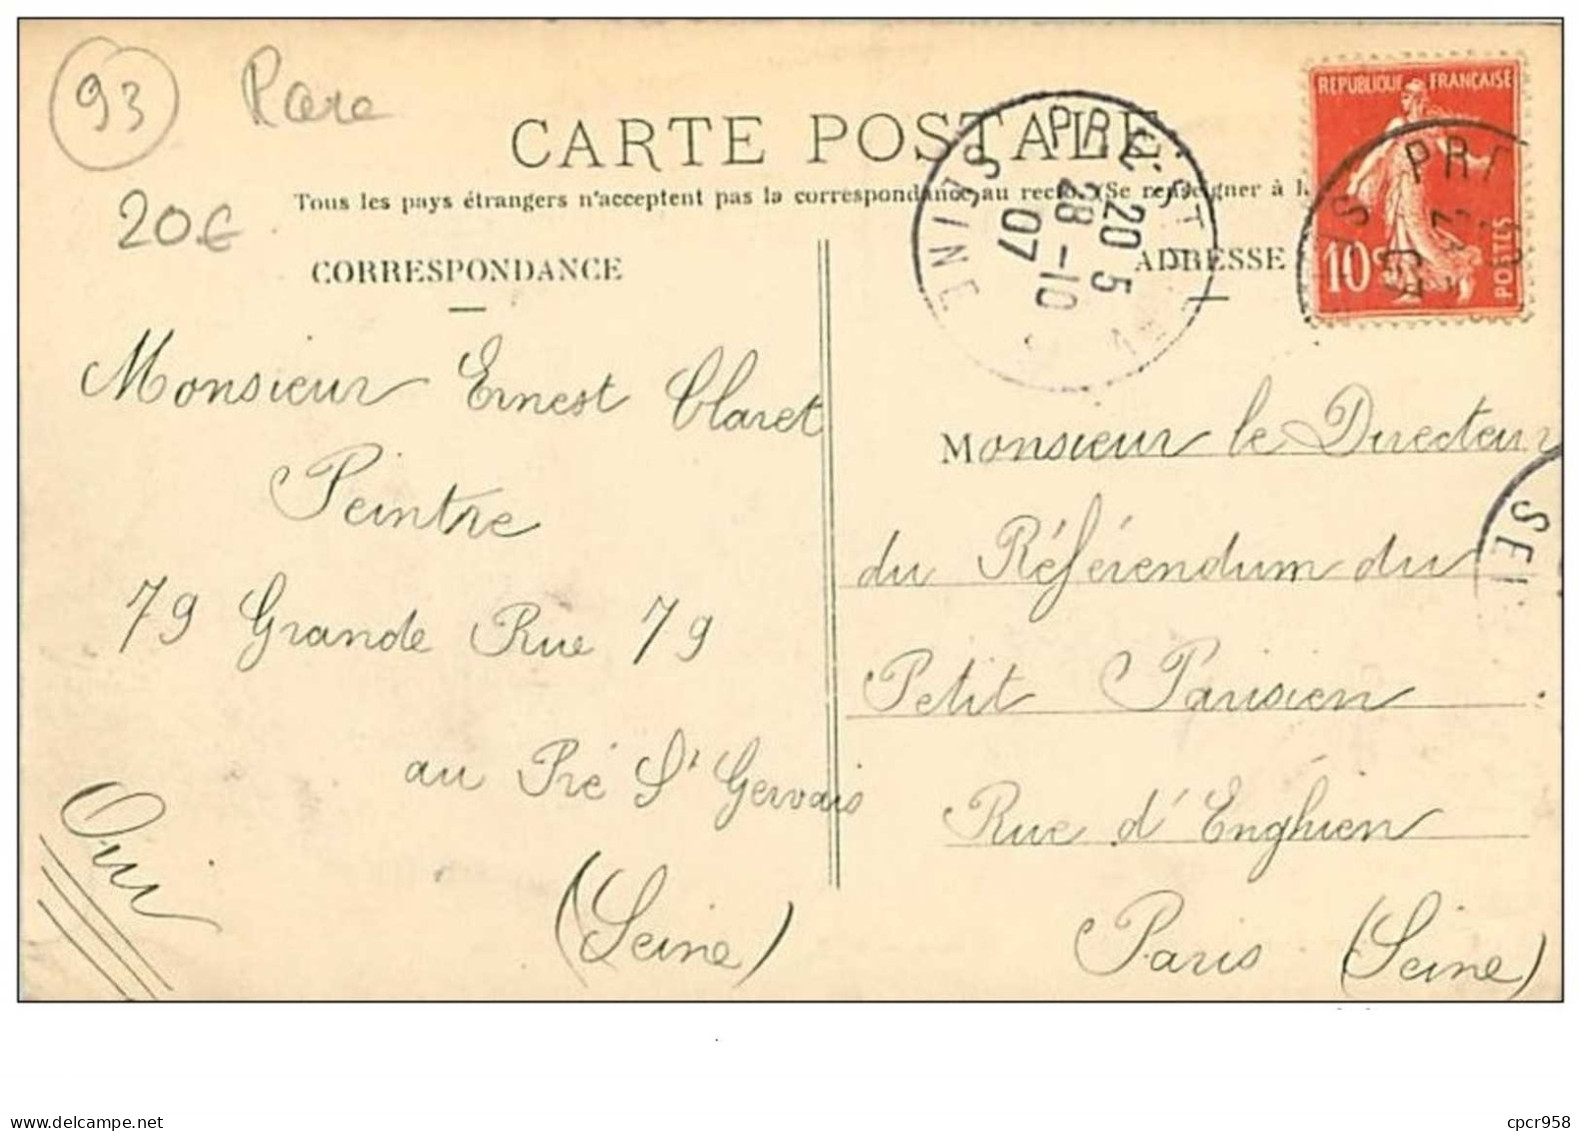 93
Rare
20€
CARTE POSTALE
Tous les pays étrangers n'acceptent pas la correspondance au recto. (Se renseigner à l
CORRESPONDANCE
Monsieur Ernest Claret
Peintre
79 Grande Rue 79
au Pré St Gervais
(Seine)
Oui
PRE-ST
SEINE
20 5
28-10
07
REPUBLIQUE FRANÇAISE
10c
POSTES
PRE
ADRESSE
Monsieur le Directeur
du Référendum du
Petit Parisien
Rue d'Enghien
Paris (Seine)
SEI
cpcr958